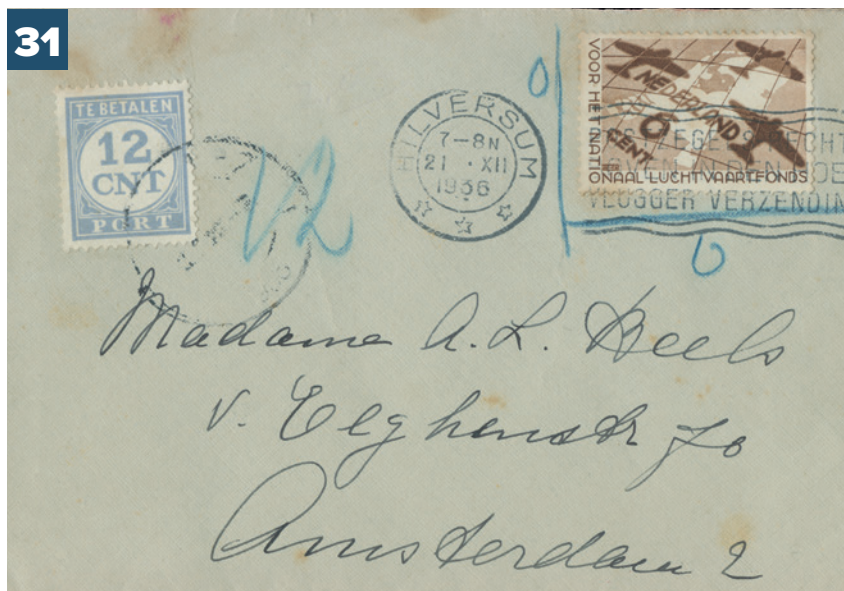 31
TE BETALEN
12
CNT
PORT
12
HILVERSUM
7-8N
21 · XII
1936
VOOR HET NATIONAAL LUCHTVAARTFONDS
NEDERLAND
6
CENT
VLUGGER VERZENDIN
0
0
Madame A. L. Beels
v. Eeghenstr 70
Amsterdam 2